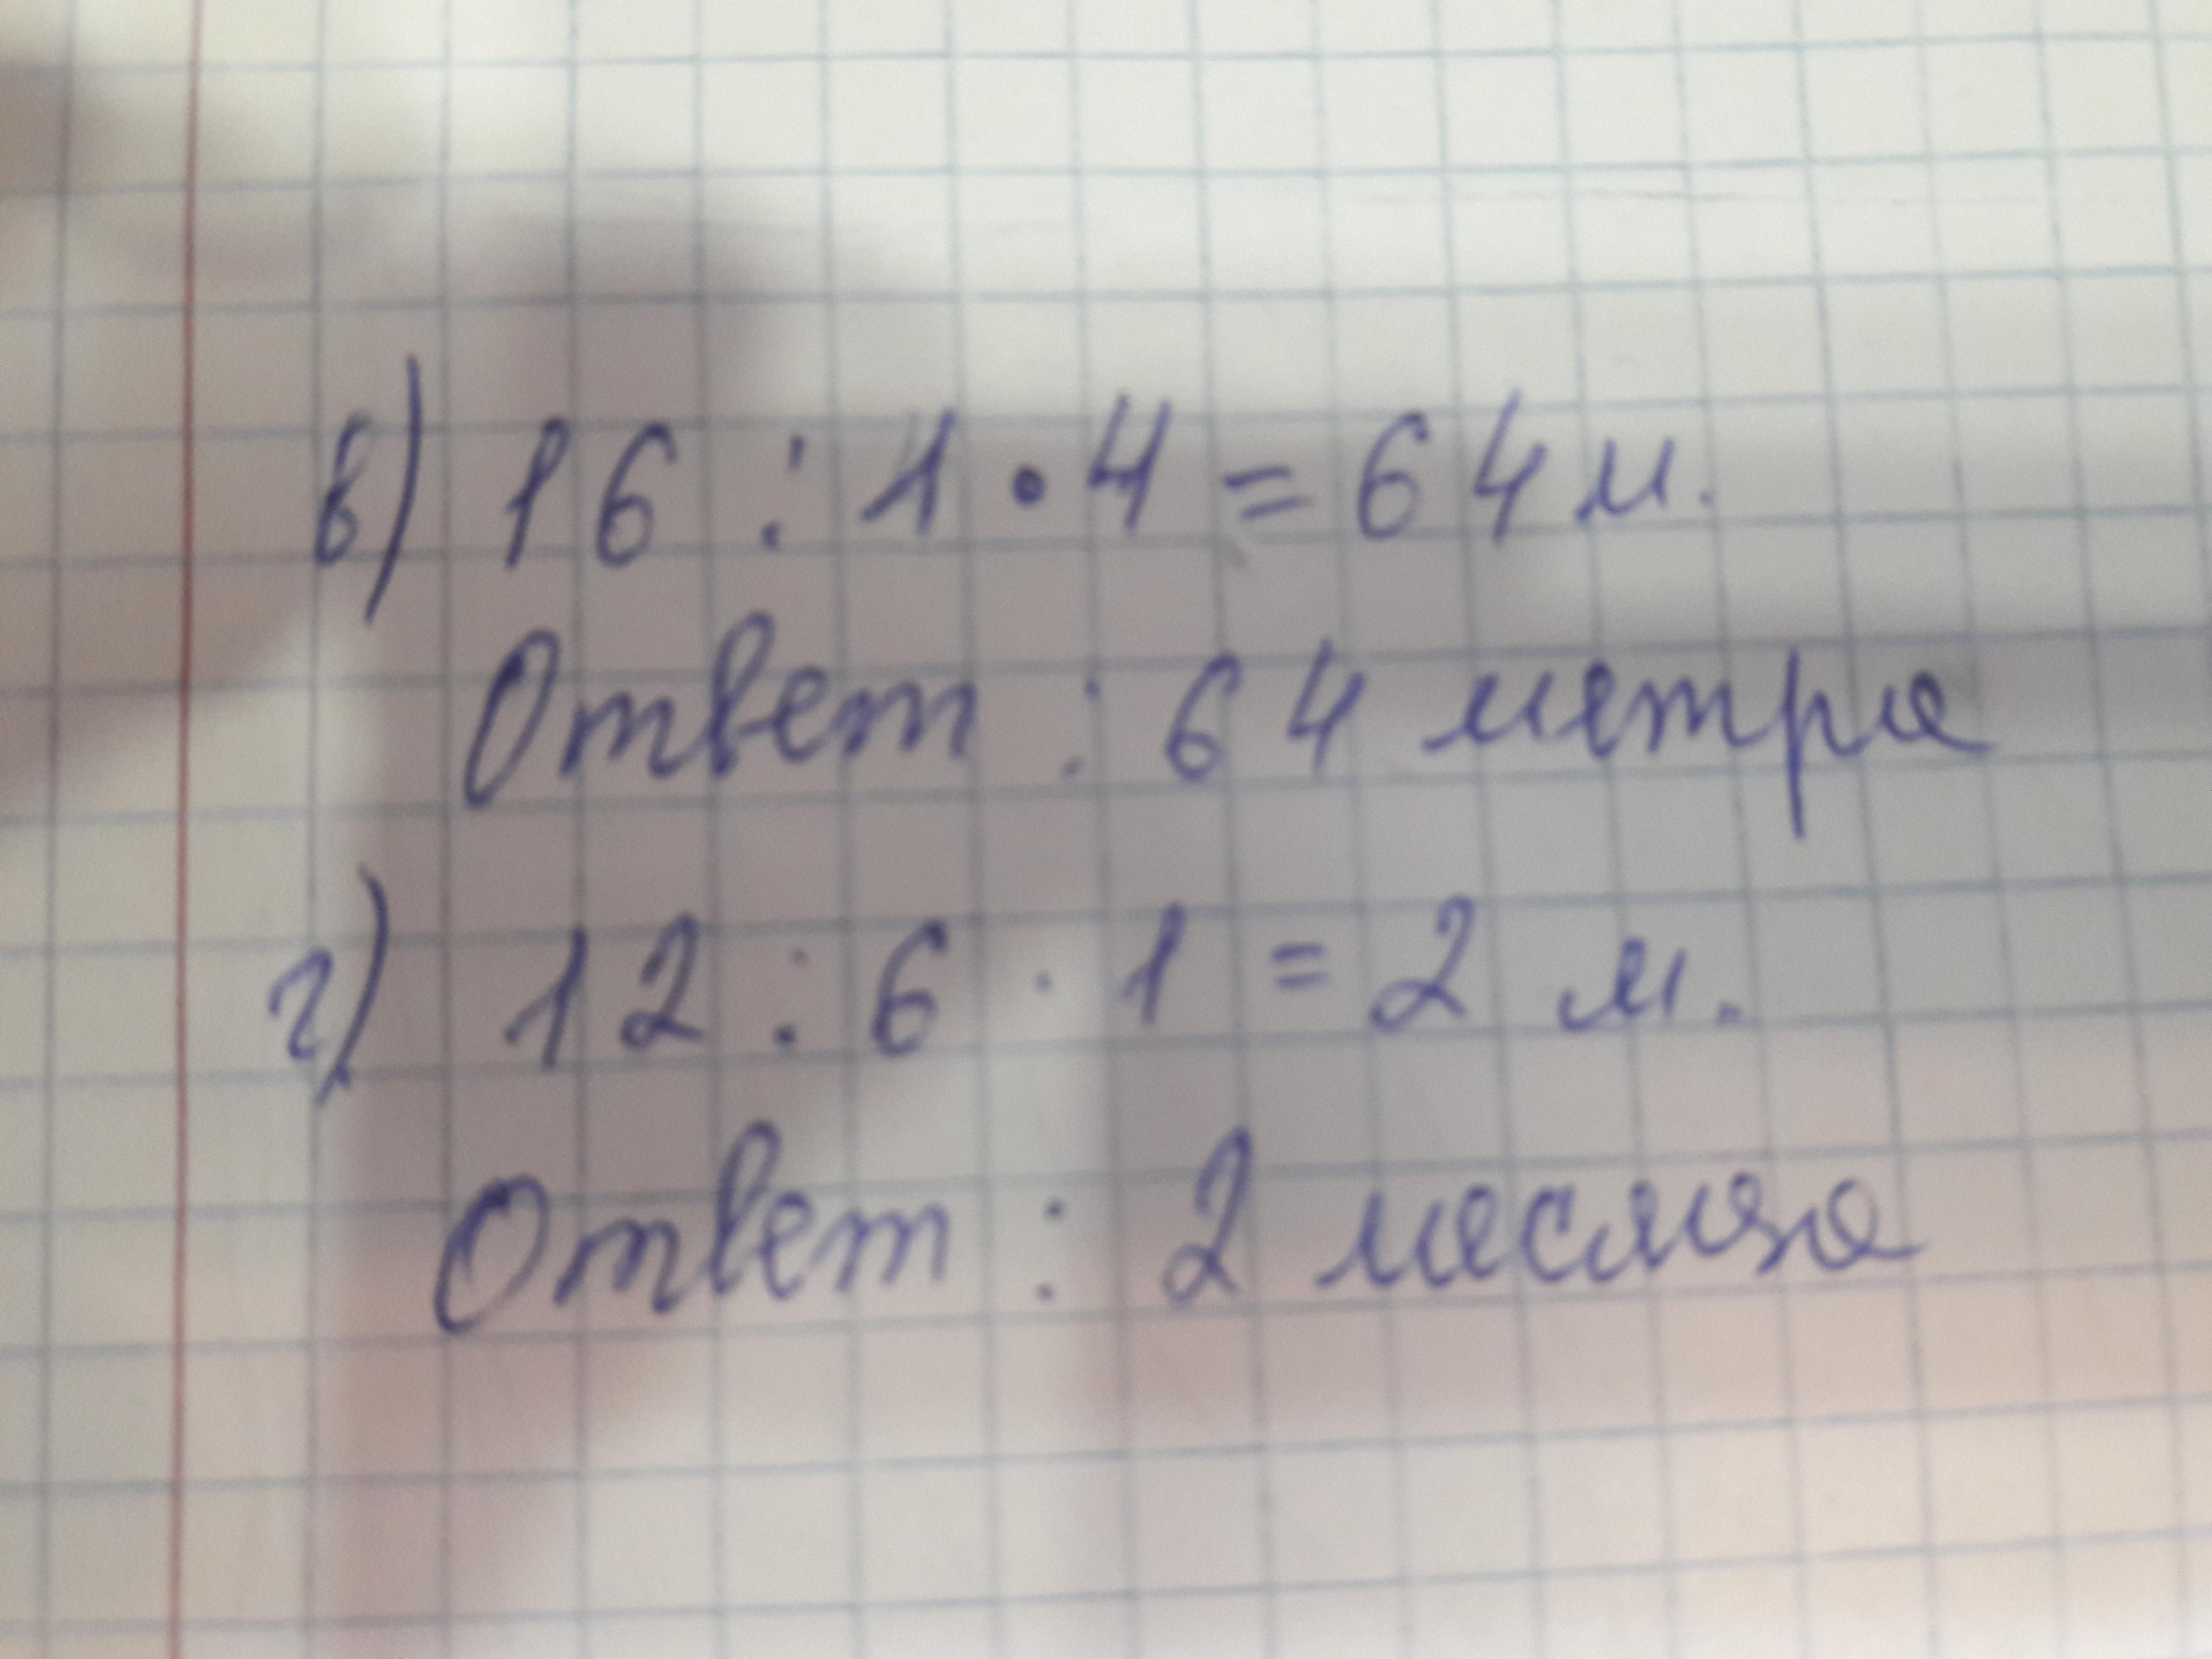 в) 16 : 1 • 4 = 64 м.
Ответ : 64 метра
г) 12 : 6 · 1 = 2 м.
Ответ : 2 месяца